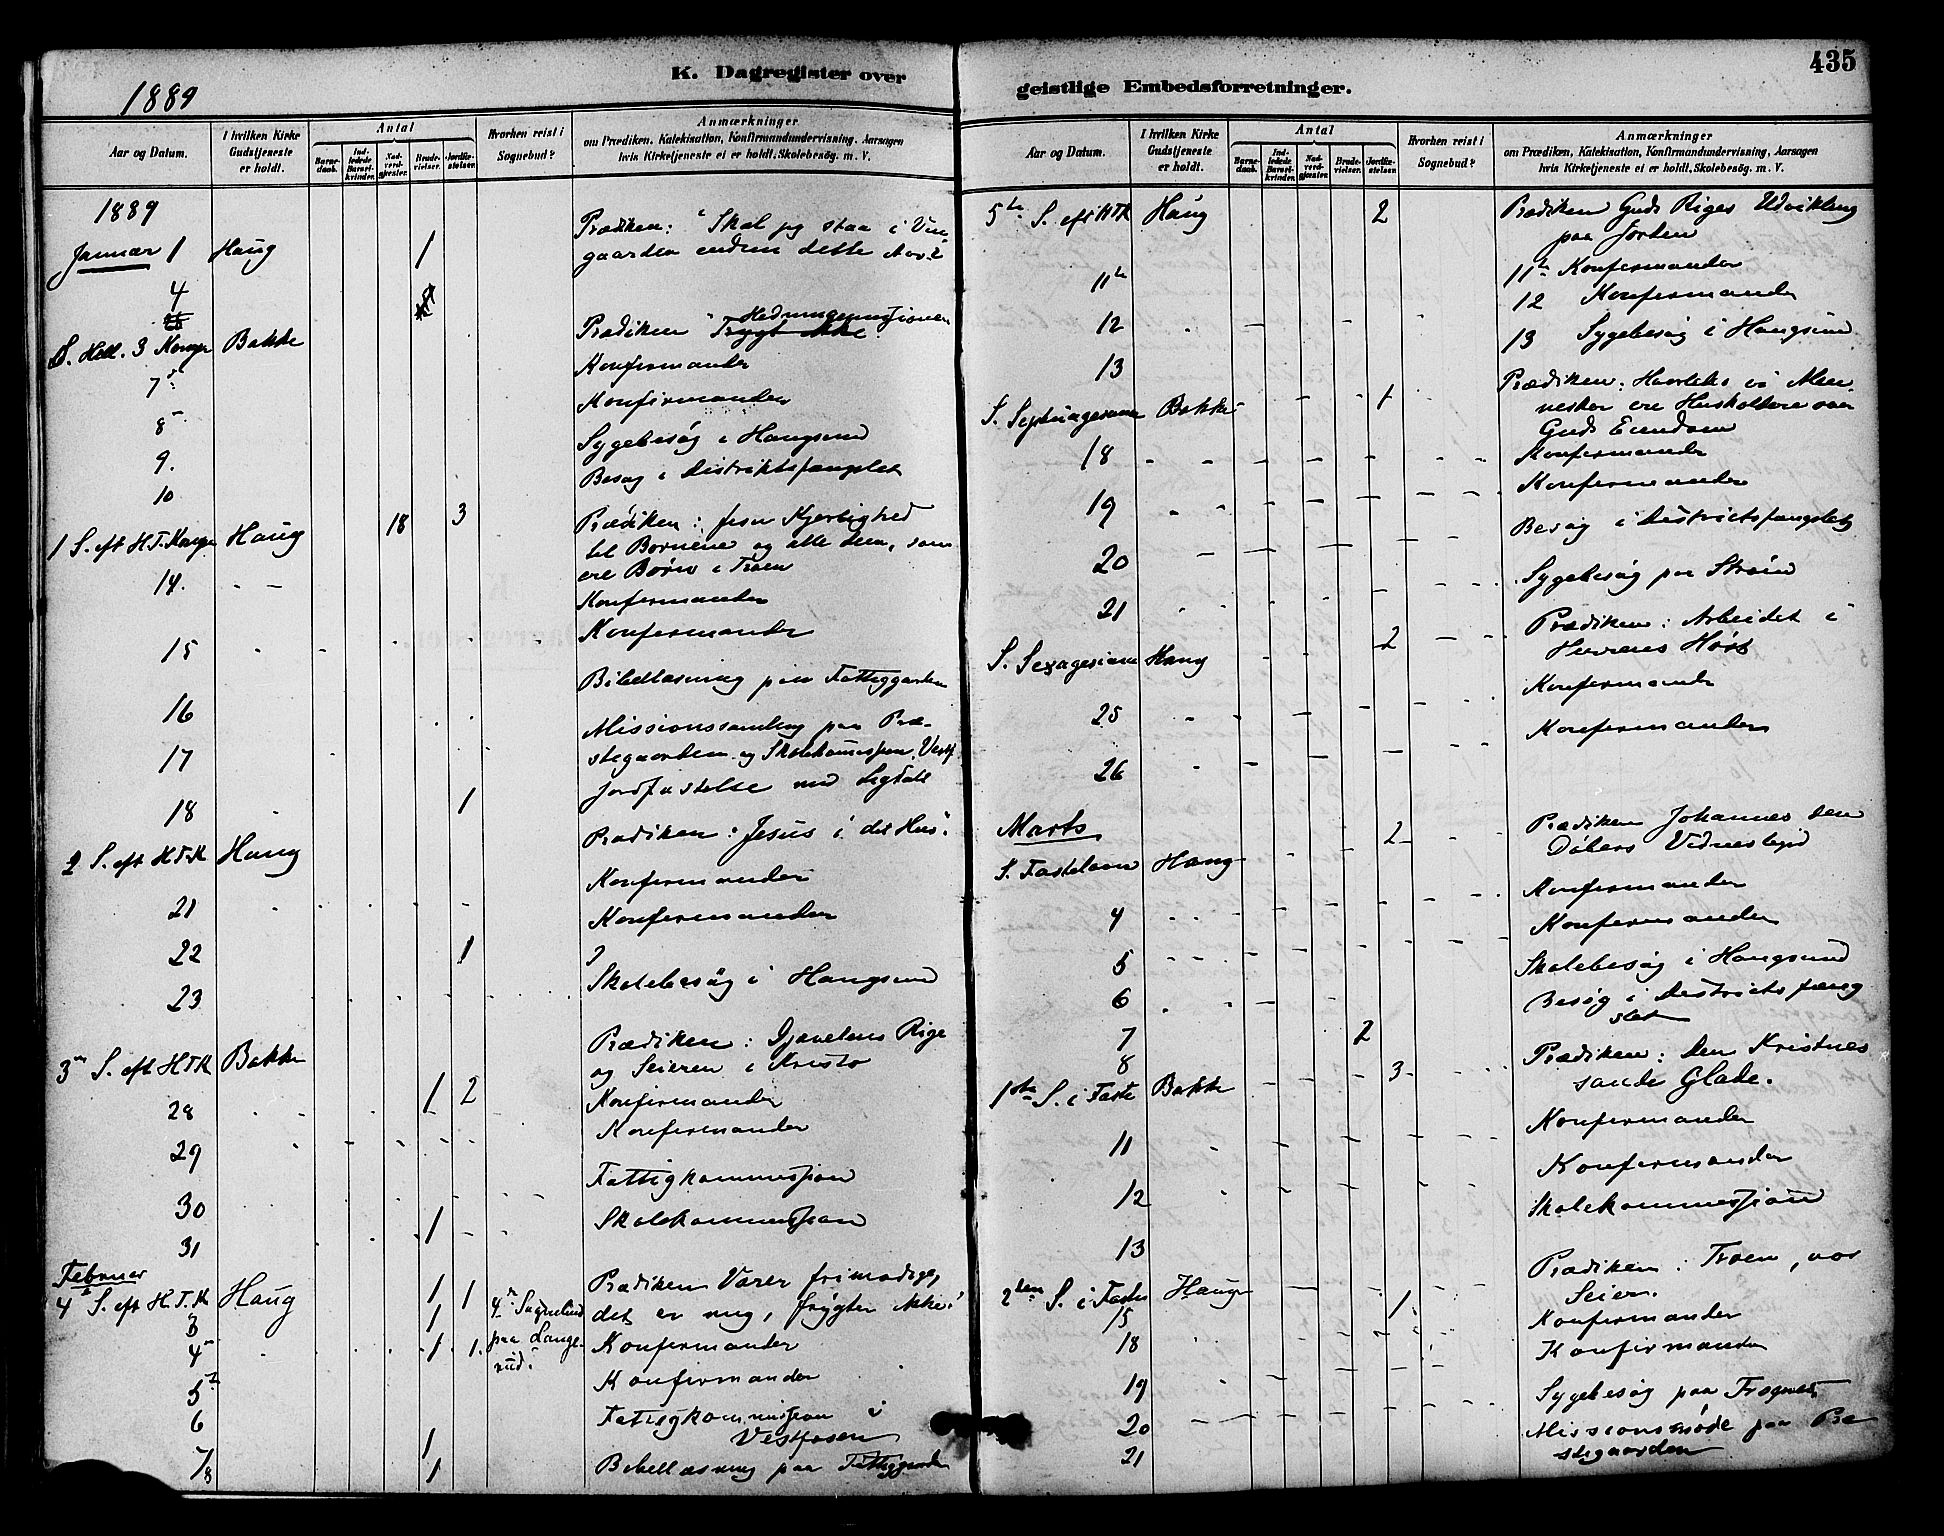 K. Dagregister over
1889
Aar og Datum.
I hvilken Kirke Gudstjeneste er holdt.
Antal
Barnedaab.
Indledede Barselkvinder.
Nadverdgjester.
Brudevielser.
Jordfæstelser.
Hvorhen reist i Sognebud?
Anmærkninger
om Prædiken, Katekisation, Konfirmandundervisning, Aarsagen
hvis Kirketjeneste ei er holdt, Skolebesög. m. V.
1889
Januar 1 Haug 1 Prædiken: "Skal jeg staa i Vin-
gaarden endnu dette Aar?
4
S. Hell. 3 Konge Bakke Prædiken Hedningemissionen
7 Konfermander
8 Konfirmander
9. Sygebesög i Haugsund
10 Besøg i Distriktsfængslet
1 S. eft H.T.Konge Haug 18 3 Prædiken: Jesu Kjerlighed
til Børnene og alle dem, som
ere Børn i Troen
14. Konfermander
15 Konfermander
16 Bibellæsning paa Fattiggarden
17 Missionssamling paa Præ-
stegaarden og Skolekommission Vestf
18 1 Jordfæstelse ved
2 S. eft H.T.K Haug Prædiken: Jesus i det Hus.
21 Konfermander
22 1 Konfermander
23 Skolebesög i Haugsund
3 S. eft HTK Bakke Prædiken: Djævelens Rige
og Seieren i Kristo
28 1 2 Konfirmander
29 Konfermander
30 Fattigkommission
31 1 Skolekommission
Februar
4 S. eft H.T.K Haug 1 1 Prædiken Værer frimodige,
3 1 det er mig, frygter ikke!
4 1 1. 4 Sognebud paa Langerud. Konfermander
5 Konfirmander
6 Fattigkommission i
1 Vestfosen
7/8 1 Bibellæsning paa Fattiggarden
435
geistlige Embedsforretninger.
Aar og Datum.
I hvilken Kirke Gudstjeneste er holdt.
Antal
Barnedaab.
Indledede Barselkvinder.
Nadverdgjester.
Brudevielser.
Jordfæstelser.
Hvorhen reist i Sognebud?
Anmærkninger
om Prædiken, Katekisation, Konfirmandundervisning, Aarsagen
hvis Kirketjeneste ei er holdt, Skolebesög. m. V.
5te S. eft HTK Haug 2 Prædiken Guds Riges Udvikling
paa Jorden
11te 11te Konfermander
12 12 Konfermander
13 13 Sygebesög i Haugsund
S. Septuagesima Bakke 1 Prædiken: Hvorledes vi Men-
nesker ere Husholdere over
Guds Eiendom
18 Konfermander
19 Konfermander
20 Besög i Districtsfængslet
21 Sygebesög paa Ström
S. Sexagesima Haug 2 Prædiken: Arbeidet i
Herrens Høst
25 Konfermander
26 Konfermander
Marts
S. Fastelavn Haug 2 Prædiken Johannes den
Döbers Vidnesbyrd
4 Konfermander
5 Konfermander
6 Skolebesög i Haugsund
7 2 Besög i Districtsfæng
slet
8
1ste S. i Faste Bakke 3 Prædiken: Den Kristnes
sande Glæde.
11 Konfermander
12 Konfermander
13 Skolekommission
2den S. i Faste Haug 1 Prædiken: Troen, vor
Seier.
15 Konfermander
18 Konfirmander
19 Sygebesög paa
20 Missionsmøde paa Præ
21 stegaarden